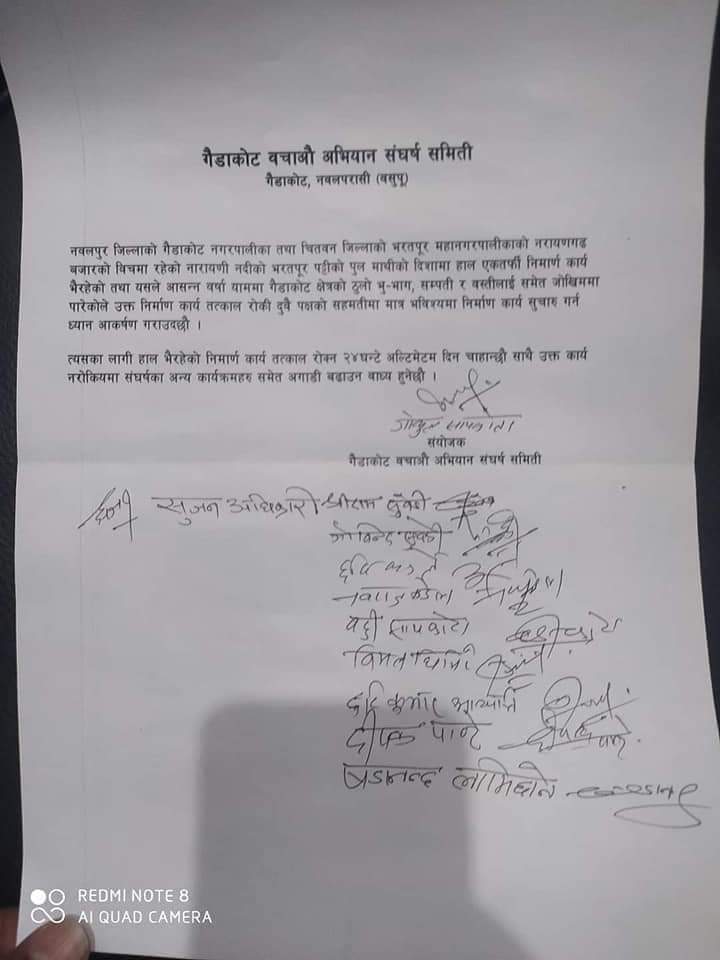 गैडाकोट वचाऔ अभियान संघर्ष समिती
गैडाकोट, नवलपरासी (वसुपू)
नवलपुर जिल्लाको गैडाकोट नगरपालीका तथा चितवन जिल्लाको भरतपूर महानगरपालीकाको नरायणगढ
बजारको विचमा रहेको नारायणी नदीको भरतपूर पट्टीको पुल माथीको दिशामा हाल एकतर्फी निमार्ण कार्य
भैरहेको तथा यसले आसन्न वर्षा याममा गैडाकोट क्षेत्रको ठुलो भु-भाग, सम्पती र वस्तीलाई समेत जोखिममा
पारेकोले उक्त निर्माण कार्य तत्काल रोकी दुवै पक्षको सहमतीमा मात्र भविष्यमा निर्माण कार्य सुचारु गर्न
ध्यान आकर्षण गराउदछौ ।
त्यसका लागी हाल भैरहेको निमार्ण कार्य तत्काल रोक्न २४घन्टे अल्टिमेटम दिन चाहान्छौ साथै उक्त कार्य
नरोकियमा संघर्षका अन्य कार्यक्रमहरु समेत अगाडी बढाउन बाध्य हुनेछौ ।
गोकुल सापकोटा
संयोजक
गैडाकोट वचाऔ अभियान संघर्ष समिती
सुजन अधिकारी श्रीराम
गोविन्द
सापकोटा
विमल
कुमार
दीपक पाण्डे
लामिछाने
REDMI NOTE 8
AI QUAD CAMERA